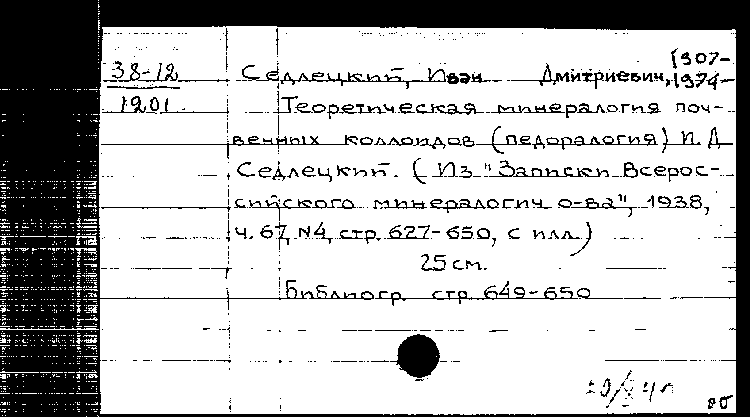 38-12
1201
1907-
Седлецкий, Иван Дмитриевич, 1974-
Теоретическая минералогия поч-
венных коллоидов (педоралогия) И. Д
Седлецкий. (Из "Записки Всерос-
сийского минералогич. о-ва", 1938,
ч. 67, N4, стр. 627-650, с илл.)
25 см.
Библиогр. стр. 649-650